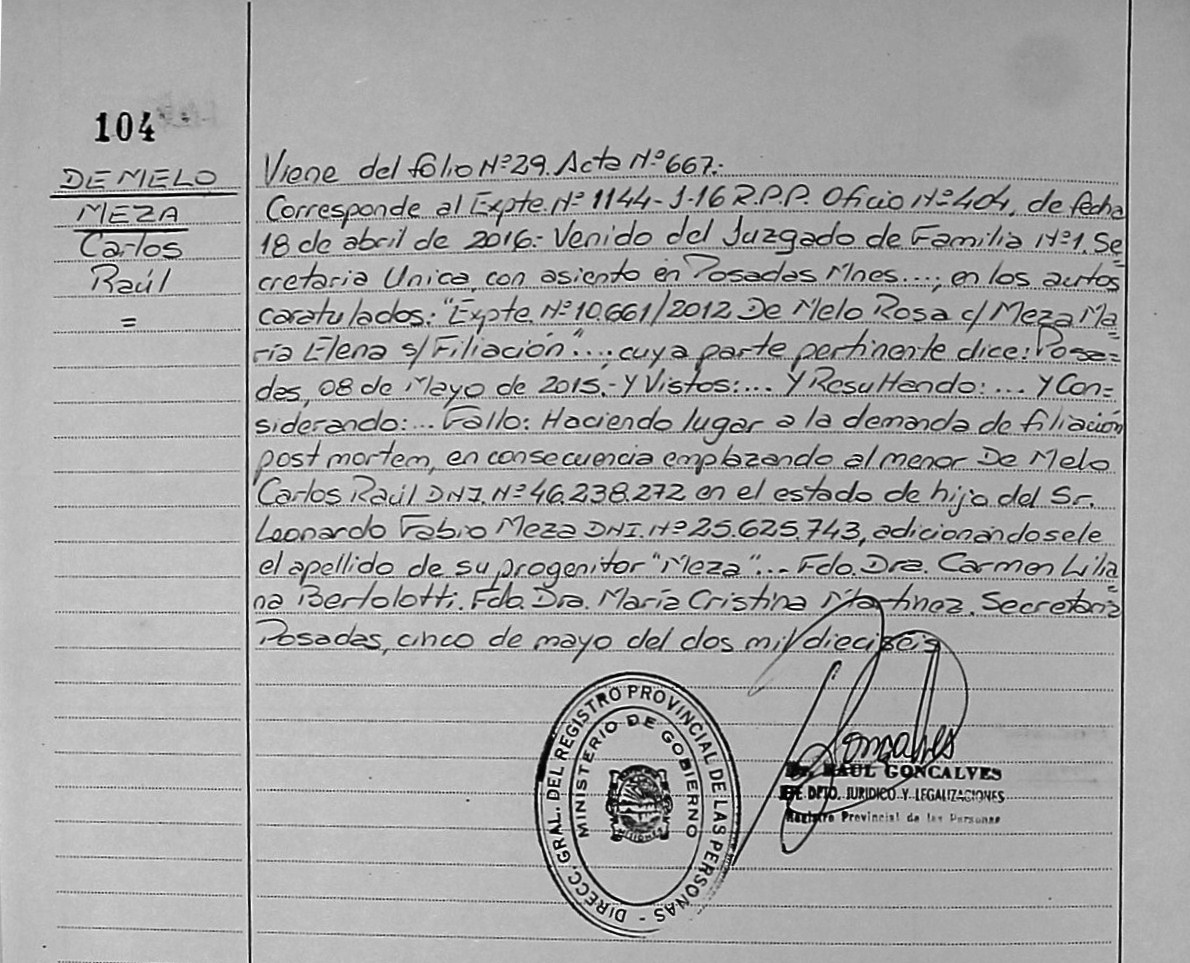 104
DE MELO
MEZA
Carlos
Raúl
=
Viene del folio Nº 29. Acta Nº 667:
Corresponde al Expte. Nº 1144-J-16 R.P.P. Oficio Nº 404, de fecha
18 de abril de 2016.- Venido del Juzgado de Familia Nº1. Se=
cretaria Unica, con asiento en Posadas Mnes...; en los autos
caratulados: "Expte. Nº 10.661/2012 De Melo Rosa c/ Meza Ma=
ría Elena s/ Filiación"...; cuya parte pertinente dice: Posa=
das, 08 de Mayo de 2015.- Y Vistos:... Y Resultando:... Y Con=
siderando:... Fallo: Haciendo lugar a la demanda de filiación
post mortem, en consecuencia emplazando al menor De Melo
Carlos Raúl DNI. Nº 46.238.272 en el estado de hijo del Sr.
Leonardo Fabio Meza DNI. Nº 25.625.743, adicionándosele
el apellido de su progenitor "Meza"... Fdo. Dra. Carmen Lilia=
na Bertolotti. Fdo. Dra. María Cristina Martinez. Secretaria
Posadas, cinco de mayo del dos mil dieciseis
DIRECC. GRAL. DEL REGISTRO PROVINCIAL DE LAS PERSONAS -
MINISTERIO DE GOBIERNO
MISIONES
Goncalves
Dr. RAUL GONCALVES
JEFE DPTO. JURIDICO Y LEGALIZACIONES
Registro Provincial de las Personas